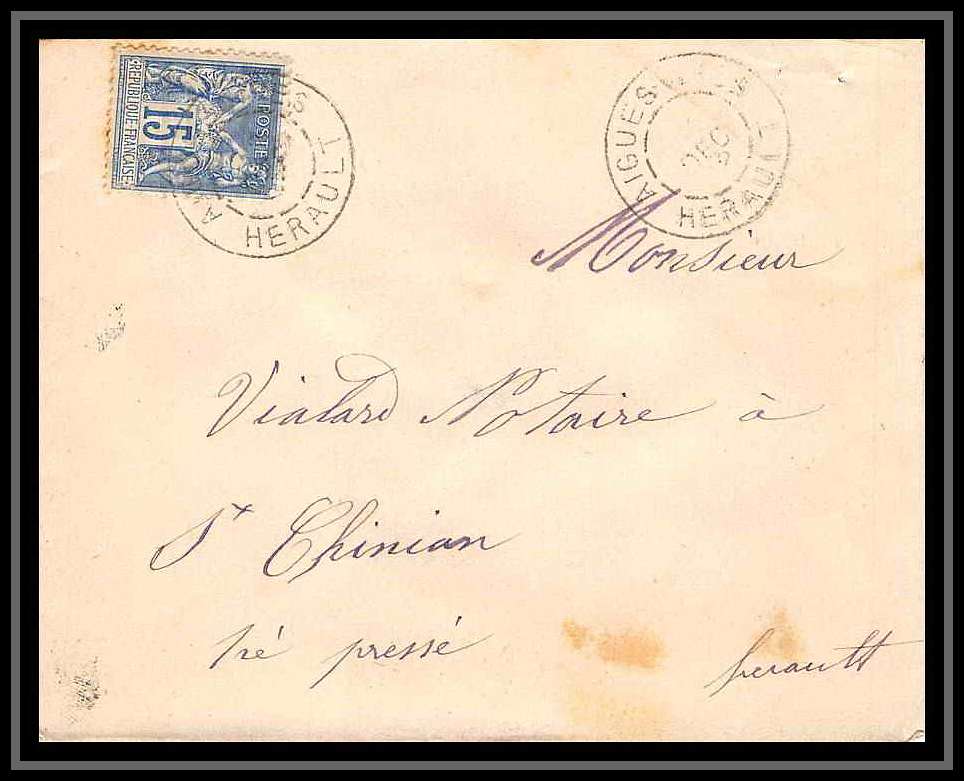 REPUBLIQUE FRANCAISE
15
POSTE
HERAULT
AIGUES
DEC
HERAULT
Monsieur
Vialard Notaire à
St Chinian
tré pressé
herault